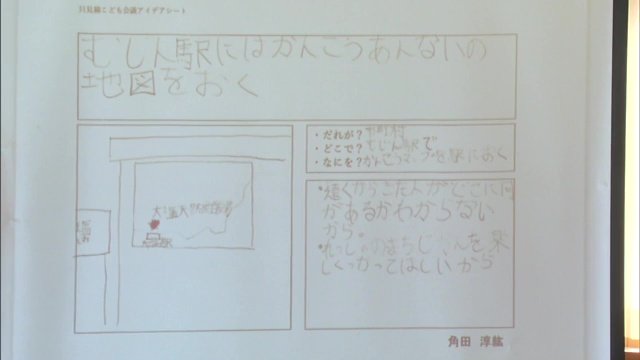 只見線こども会議アイデアシート
むじん駅にはかんこうあんないの
地図をおく
・だれが？市町村
・どこで？むじん駅で
・なにを？かんこうマップを駅におく
・遠くからきた人がどこに何
があるかわからない
から。
しくつかってほしいから
角田 淳紘